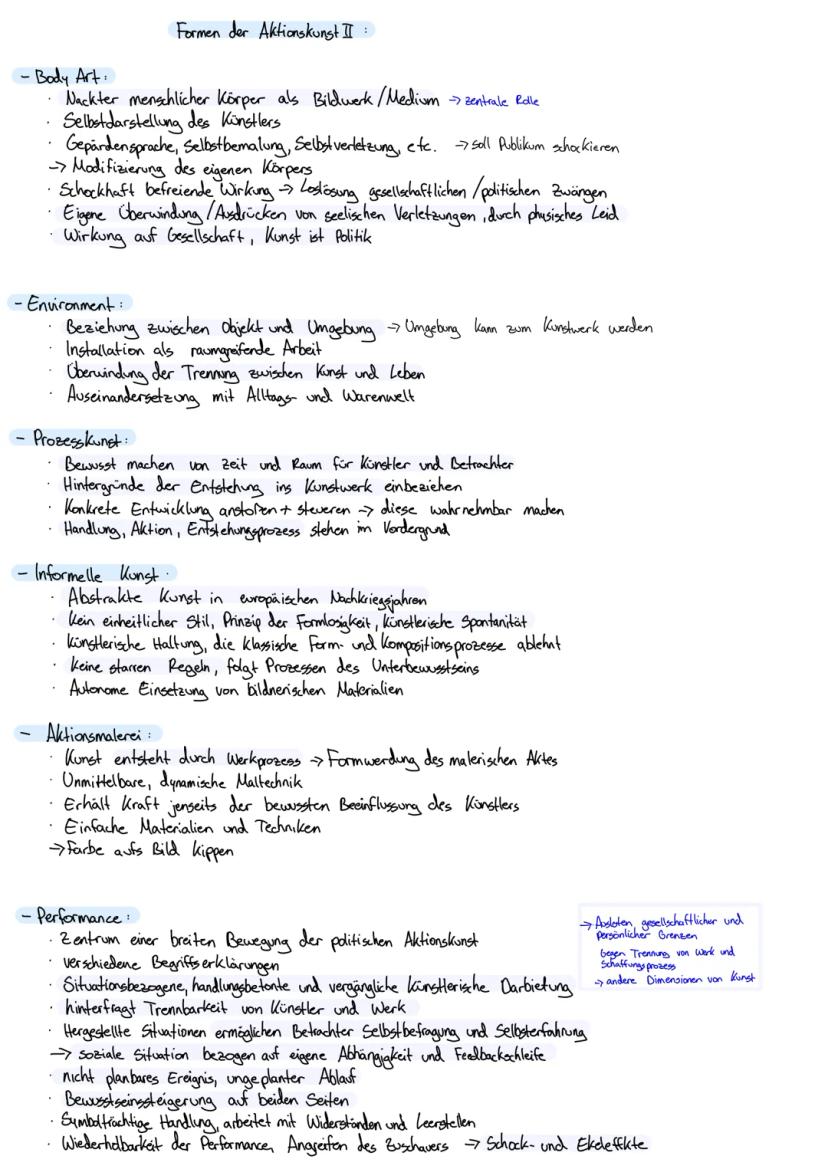 Formen der Aktionskunst II :
- Body Art:
· Nackter menschlicher Körper als Bildwerk/Medium → zentrale Rolle
· Selbstdarstellung des Künstlers
· Gepärdensprache, Selbstbemalung, Selbstverletzung, etc. → soll Publikum schockieren
→ Modifizierung des eigenen Körpers
· Schockhaft befreiende Wirkung → Loslösung gesellschaftlichen/politischen Zwängen
· Eigene Überwindung/Ausdrücken von seelischen Verletzungen, durch phusisches Leid
· Wirkung auf Gesellschaft, Kunst ist Politik
- Environment:
· Beziehung zwischen Objekt und Umgebung → Umgebung kann zum Kunstwerk werden
· Installation als raumgreifende Arbeit
· Überwindung der Trennung zwischen Kunst und Leben
· Auseinandersetzung mit Alltags- und Warenwelt
- Prozesskunst:
· Bewusst machen von Zeit und Raum für Künstler und Betrachter
· Hintergründe der Entstehung ins Kunstwerk einbeziehen
· Konkrete Entwicklung anstoßen + steueren → diese wahrnehmbar machen
· Handlung, Aktion, Entstehungsprozess stehen im Vordergrund
- Informelle Kunst:
· Abstrakte Kunst in europäischen Nachkriegsjahren
· Kein einheitlicher Stil, Prinzip der Formlosigkeit, künstlerische Spontanität
· Künstlerische Haltung, die klassische Form- und Kompositionsprozesse ablehnt
· Keine starren Regeln, folgt Prozessen des Unterbewusstseins
· Autonome Einsetzung von bildnerischen Materialien
- Aktionsmalerei:
· Kunst entsteht durch Werkprozess → Formwerdung des malerischen Aktes
· Unmittelbare, dynamische Maltechnik
· Erhält Kraft jenseits der bewussten Beeinflussung des Künstlers
· Einfache Materialien und Techniken
→ Farbe aufs Bild kippen
- Performance:
· Zentrum einer breiten Bewegung der politischen Aktionskunst
· verschiedene Begriffserklärungen
· Situationsbezogene, handlungsbetonte und vergängliche künstlerische Darbietung
· hinterfragt Trennbarkeit von Künstler und Werk
· Hergestellte Situationen ermöglichen Betrachter Selbstbefragung und Selbsterfahrung
→ soziale Situation bezogen auf eigene Abhängigkeit und Feedbackschleife
· nicht planbares Ereignis, ungeplanter Ablauf
· Bewusstseinssteigerung auf beiden Seiten
· Symbolträchtige Handlung, arbeitet mit Widerständen und Leerstellen
· Wiederholbarkeit der Performance, Angreifen des Zuschauers → Schock- und Ekeleffekte
→ Ausloten gesellschaftlicher und
persönlicher Grenzen
Gegen Trennung von Werk und
Schaffungsprozess
→ andere Dimensionen von Kunst